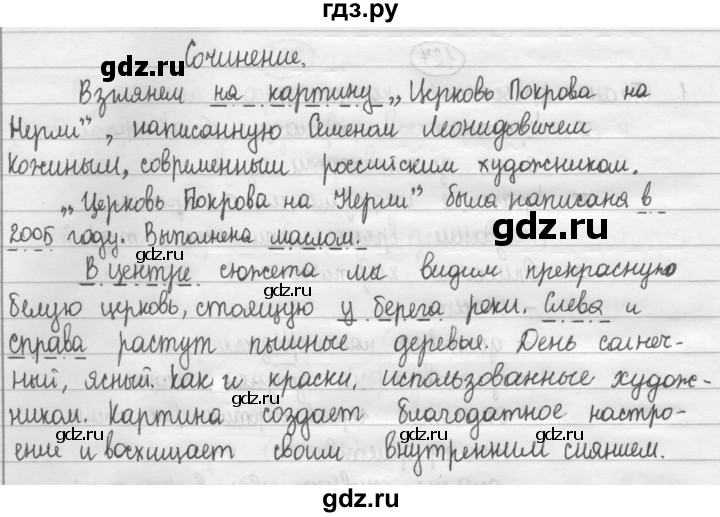 гдз.ру
Сочинение.
Взглянем на картину „Церковь Покрова на
Нерли", написанную Семеном Леонидовичем
Кожиным, современным российским художником.
„Церковь Покрова на Нерли" была написаня в
2005 году. Выполнена маслом.
В центре сюжета мы видим прекрасную
белую церковь, стоящую у берега реки. Слева и
справа растут пышные деревья. День солнеч-
ный, ясный. Как и краски, использованные худож-
ником. Картина создает благодатное настро-
ение и восхищает своим внутренним сиянием.
gdz.ru
gdz.ru
gdz.ru
gdz.ru
gdz.ru
gdz.ru
gdz.ru
gdz.ru
gdz.ru
gdz.ru
gdz.ru
gdz.ru
gdz.ru